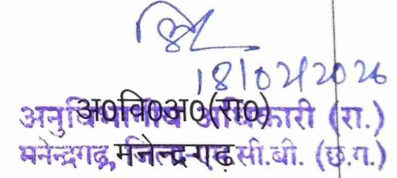 18/02/2026
अ०वि०अ०(रा०)
अनुविभागीय अधिकारी (रा.)
मनेन्द्रगढ़
मनेन्द्रगढ़, जिला-एम.सी.बी. (छ.ग.)